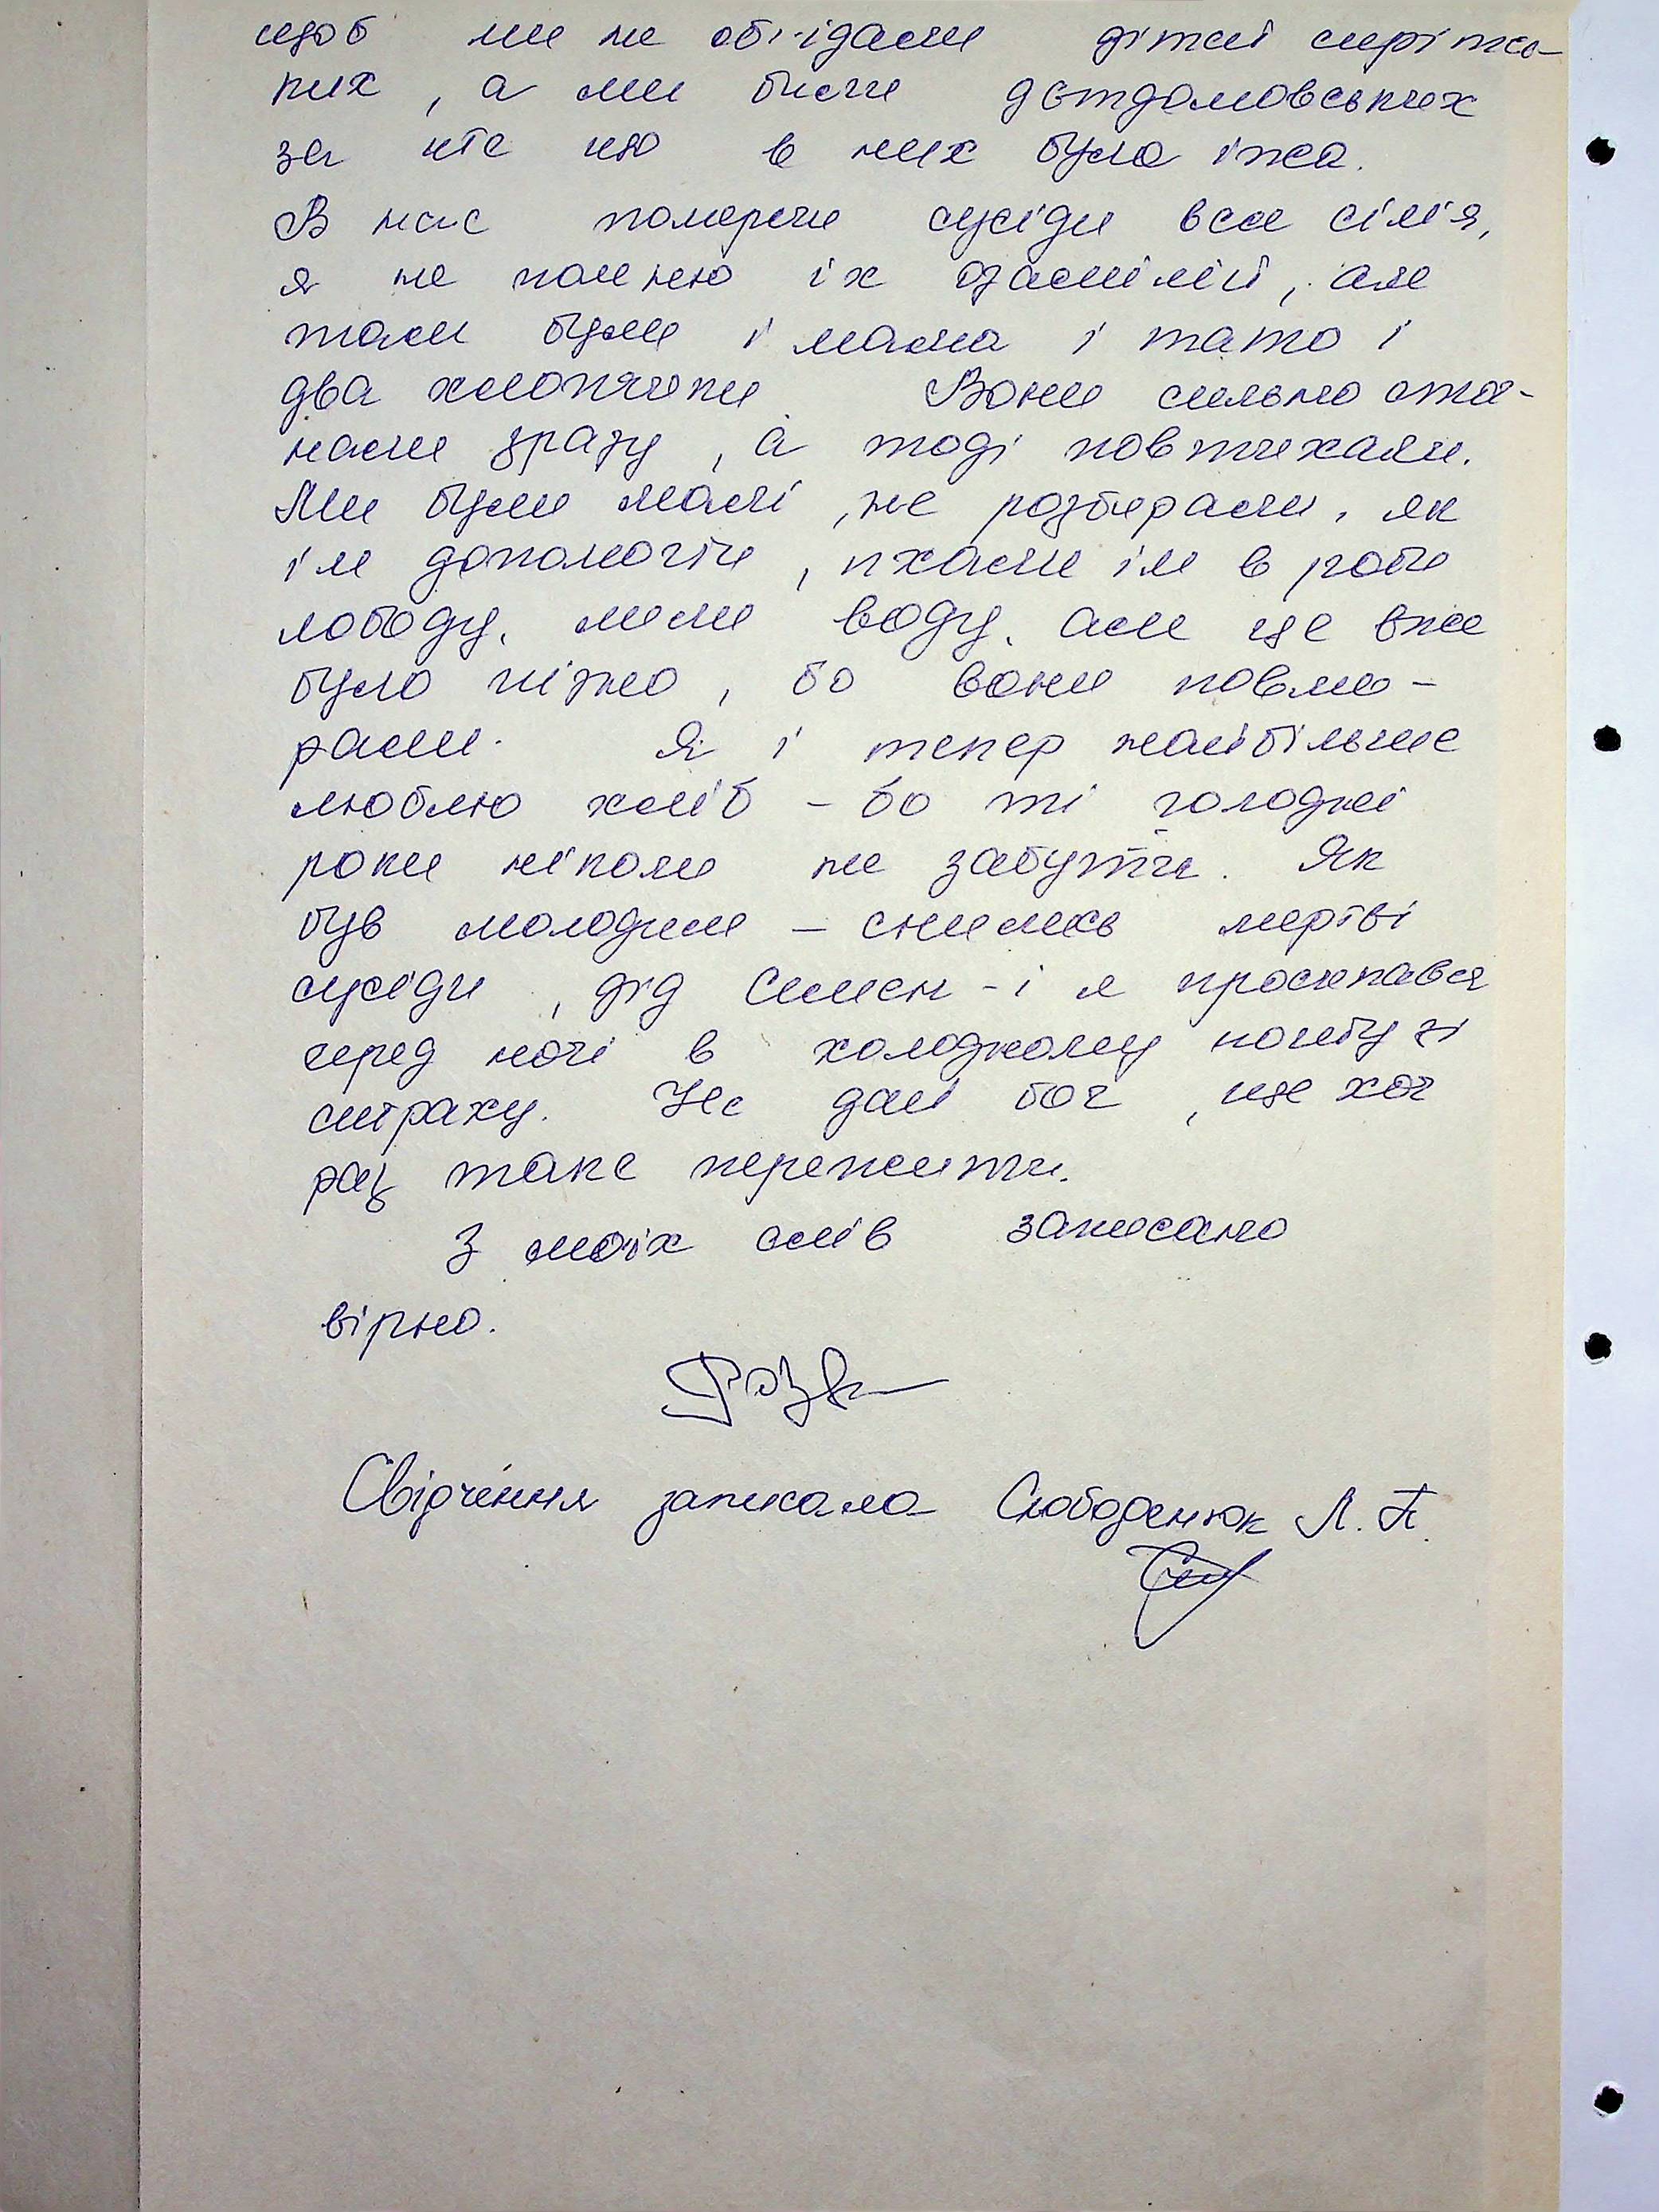 щоб ми не обіідали дітей сиріток-
ких, а ми били дєтдомовських
за те що в них була їжа.
В нас померли сусіди вся сім'я,
я не помню їх фамілії, але
там були і мама і тато і
два хлопчики. Вони сильно сто-
нали зразу, а тоді повтихали.
Ми були малі, не розбирали, як
їм допомогти, пхали їм в роти
лободу, лили воду, але це вже
було пізно, бо вони повми-
рали. Я і тепер найбільше
люблю хліб - бо ті голодні
роки ніколи не забути. Як
був молодим - снились мертві
сусіди, дід Семен - і я просипався
серед ночі в холодному поту зі
страху. Не дай бог, ще хоч
раз таке пережити.
З моїх слів записано
вірно.
Свідчення записала Слободенюк Л. П.